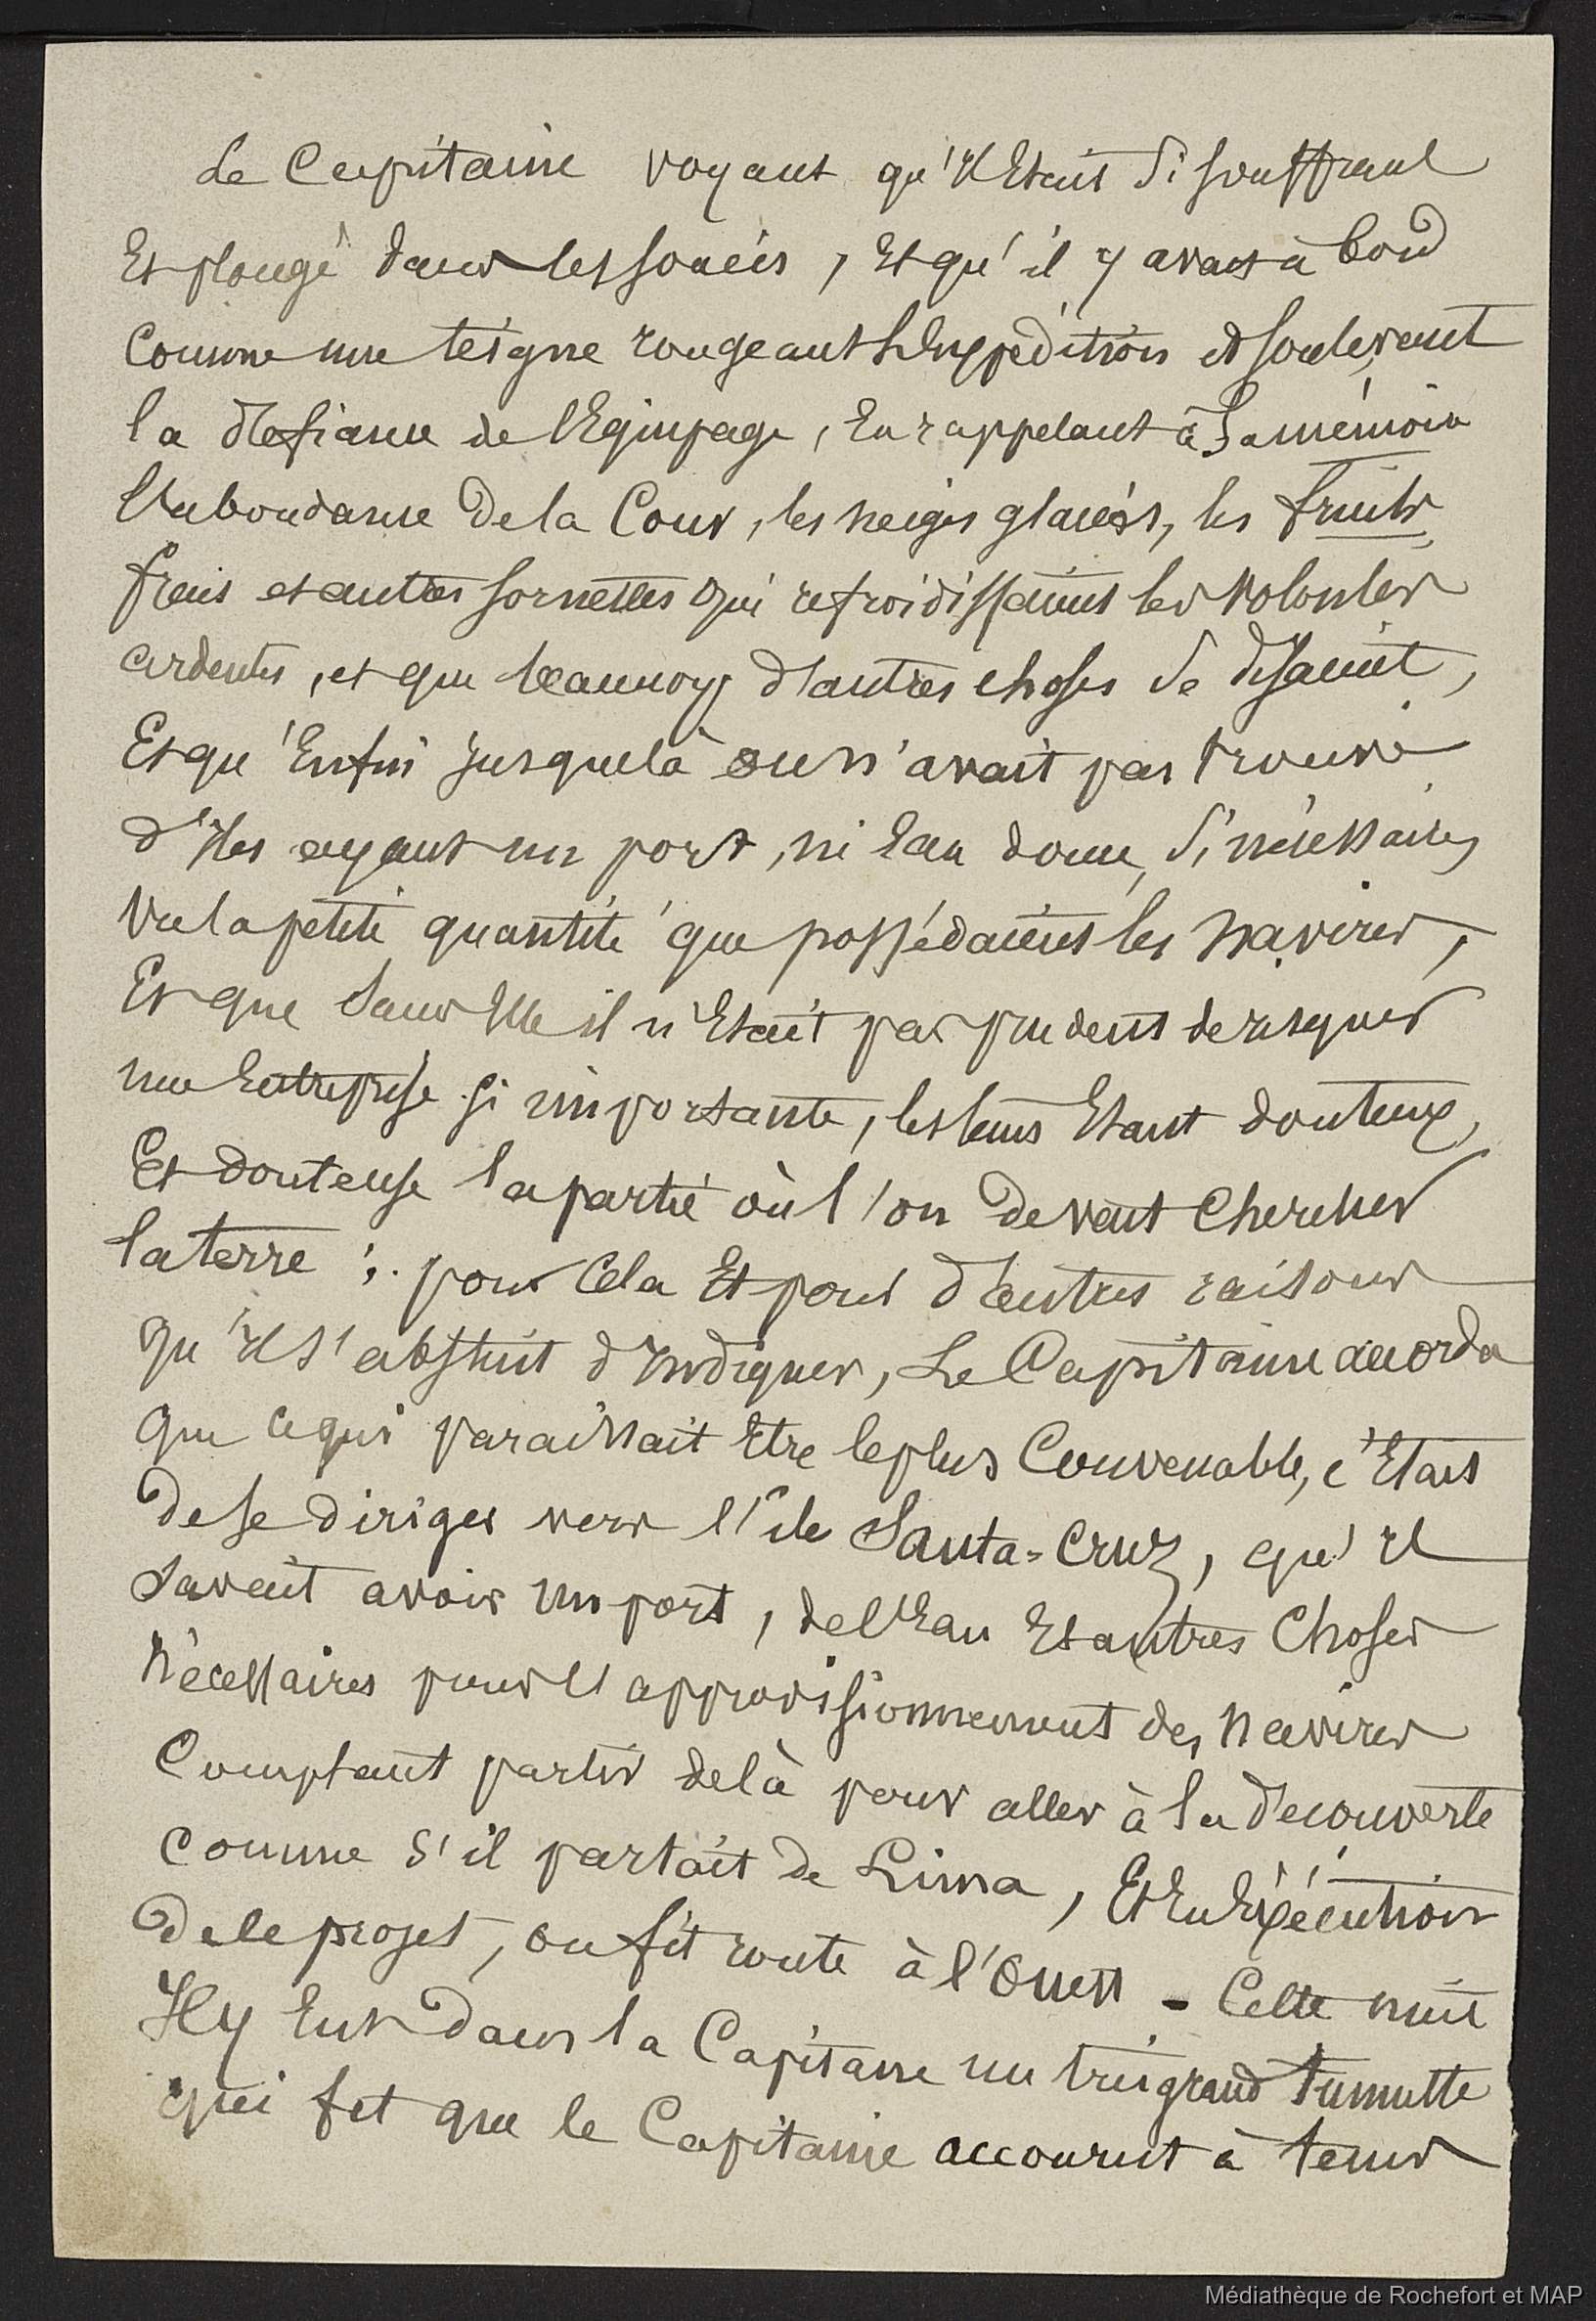 Le Capitaine voyant qu'il Etait si souffrant
Et plongé dans les soucis, Et qu'il y avait à bord
Comme une teigne rongeant L'Expédition et soulevant
la défiance de l'Equipage, En rappelant à Sa mémoire
l'abondance de la Cour, les neiges glacées, les fruits
frais et autres sornettes qui refroidissaient les volontés
ardentes, et que beaucoup d'autres choses se disaient,
Et qu'Enfin jusque là on n'avait pas trouvé
d'Iles ayant un port, ni Eau douce, si nécessaire
vu la petite quantité que possédaient les navires,
Et que sans Elle il n'Etait pas prudent de risquer
une Entreprise si importante, les temps Etant douteux,
Et douteuse la partie où l'on devait chercher
la terre ; pour Cela Et pour d'autres raisons
qu'Il s'abstint d'Indiquer, Le Capitaine accorda
que ce qui paraissait Etre le plus Convenable, c'Etait
de se diriger vers l'île Santa-Cruz, qu'Il
savait avoir un port, de l'Eau Et autres Choses
nécessaires pour l'approvisionnement des navires
Comptant partir de là pour aller à la découverte
comme s'il partait de Lima, Et En Exécution
de ce projet, on fit route à l'Ouest - Cette nuit
Il y Eut dans la Capitane un très grand tumulte
qui fit que le Capitaine accourut à tenir
Médiathèque de Rochefort et MAP